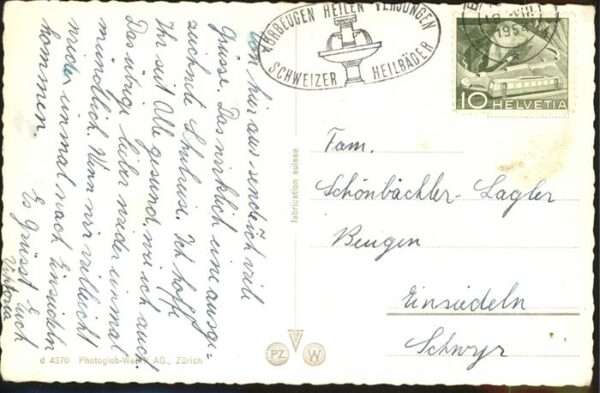 VORBEUGEN HEILEN VERJÜNGEN
SCHWEIZER HEILBÄDER
10 HELVETIA
Von hier aus sende ich viele
Grüsse. Das wirklich eine ausge-
zeichnete Skireise. Ich hoffe
Ihr seit Alle gesund, wie ich auch.
Das übrige lieber wieder einmal
mündlich. Wenn wir vielleicht
wieder einmal nach Einsiedeln
kommen.
Es Grüsst Euch
Viktoria
fabrication suisse
Fam.
Schönbächler-Lagler
Bengen
Einsiedeln
Schwyz
d 4370 Photoglob-Wehrli AG., Zürich
PZ W